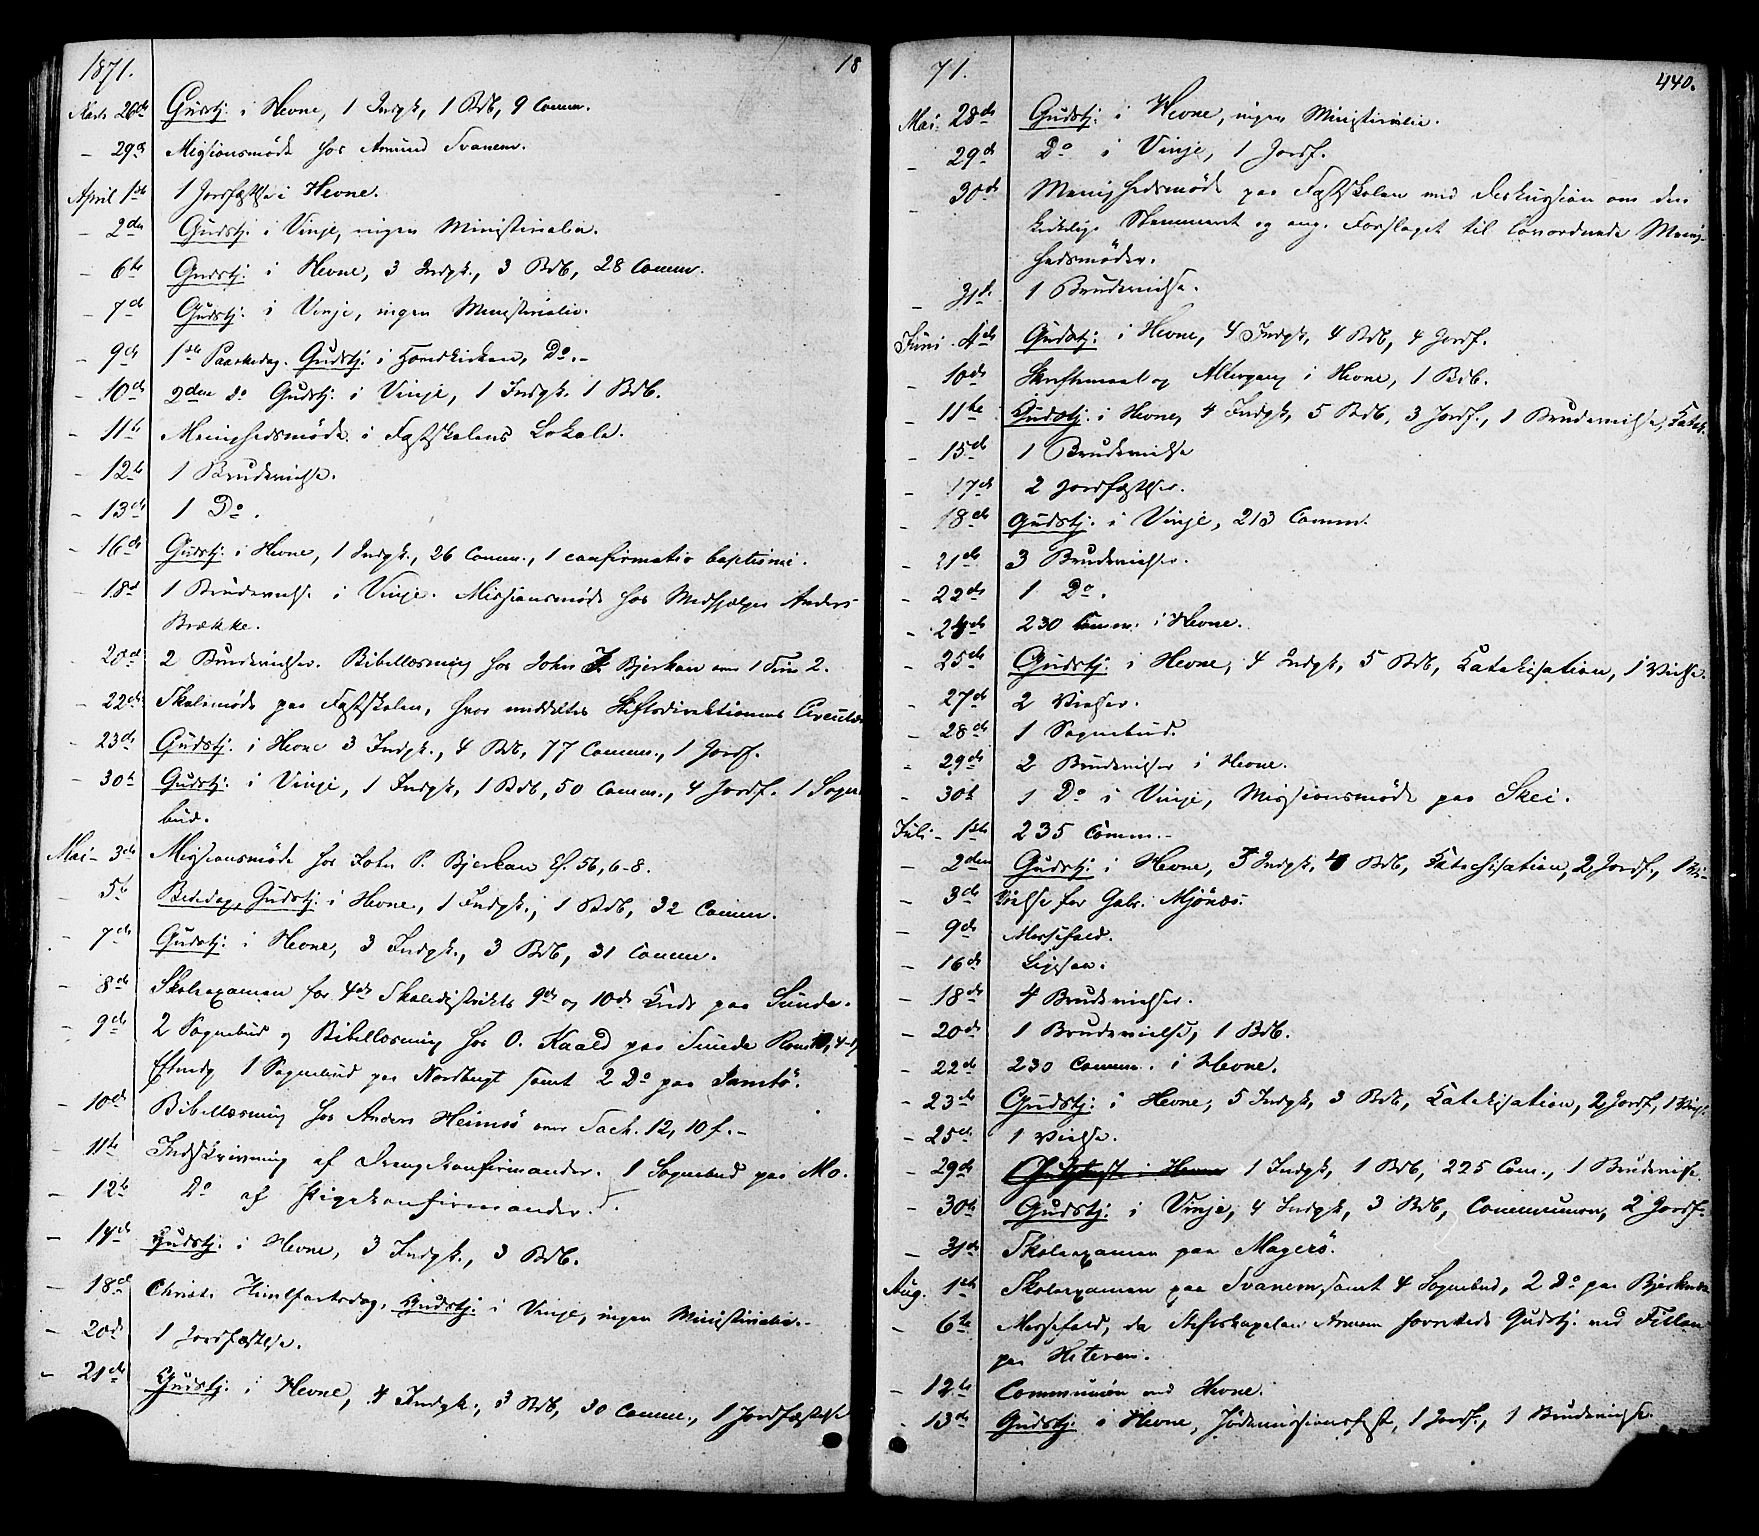 1871. 18
Marts 26de Gudstj: i Hevne, 1 Indgk, 1 Bdb, 9 Comm.
- 29de Missionsmøde hos Amund Svanem.
April 1ste 1 Jordfæstelse i Hevne.
- 2den Gudstj: i Vinje, ingen Ministerialia.
- 6te Gudstj: i Hevne, 3 Indgk., 3 Bdb, 28 Comm.
- 7de Gudstj. i Vinje, ingen Ministerialia.
- 9de 1ste Paaskedag. Gudstj: i Hovedkirken, Do.-
- 10de 2den do Gudstj: i Vinje, 1 Indgk. 1 Bdb.
- 11te Menighedsmøde i Fastskolens Lokale.
- 12te 1 Brudevielse.
- 13de 1 Do.
- 16de Gudstj: i Hevne, 1 Indgk., 26 Comm., 1 confirmatio baptismi.
- 18de 1 Brudevielse i Vinje. Missionsmøde hos Medhjælper Anders
Brække.
- 20de 2 Brudevielser. Bibellæsning hos John Bjerkan over 1 Tim 2.
- 22de Skolemøde paa Fastskolen, hvor meddeltes Stiftsdirektionens
- 23de Gudstj. i Hevne 3 Indgk., 4 Bdb, 77 Comm., 1 Jordf.
- 30te Gudstj: i Vinje, 1 Indgk, 1 Bdb, 50 Comm., 4 Jordf. 1 Sogne
bud.
Mai - 3de Missionsmøde hos John P. Bjerkan Es. 56, 6-8.
- 5te Bededag, Gudstj: i Hevne, 1 Indgk., 1 Bdb, 32 Comm.
- 7de Gudstj: i Hevne, 3 Indgk., 3 Bdb, 31 Comm.
- 8de Skoleexamen for 4de Skoledistrikts 9de og 10de Kreds paa Sunde.
- 9de 2 Sognebud og Bibellæsning hos O. Kaald paa Sunde Rom
1 Sognebud paa Nordbugt samt 2 Do paa Jamtø.
- 10de Bibellæsning hos Anders Heimsø over Zach. 12, 10 f.-
- 11te Indskrivning af Drengekonfirmander. 1 Sognebud paa Mo.
- 12te Do af Pigekonfirmander.
- 14de Gudstj: i Hevne, 3 Indgk., 3 Bdb.
- 18de Christi Himmelfartsdag, Gudstj: i Vinje, ingen Ministerialia.-
- 20de 1 Jordfæstelse.
- 21de Gudstj. i Hevne, 4 Indgk., 3 Bdb, 30 Comm., 1 Jordfæstelse
71. 440.
Mai: 28de Gudstj: i Hevne, ingen Ministerialia.
- 29de Do i Vinje, 1 Jordf.
- 30te Menighedsmøde paa Fastskolen med Diskussion om den
kirkelige Stemmeret og ang. Forslaget til lovordnede Menig-
hedsmøder.
- 31te 1 Brudevielse.
Juni 4de Gudstj: i Hevne, 4 Indgk, 4 Bdb, 4 Jordf.
- 10de Skriftemaal og Altergang i Hevne, 1 Bdb.
- 11te Gudstj: i Hevne, 4 Indgk, 5 Bdb, 3 Jordf., 1 Brudevielse, Katek.
- 15de 1 Brudevielse
- 17de 2 Jordfæstelser.
- 18de Gudstj: i Vinje, 213 Comm.
- 21de 3 Brudevielser.
- 22de 1 Do.
- 24de 230 Comm: i Hevne.
- 25de Gudstj: i Hevne, 4 Indgk, 5 Bdb, Katekisation, 1 Vielse.
- 27de 2 Vielser.
- 28de 1 Sognebud.
- 29de 2 Brudevielser i Hevne.
- 30te 1 Do i Vinje, Missionsmøde paa Skei.
Juli - 1ste 235 Comm.-
- 2den Gudstj: i Hevne, 5 Indgk, 4 Bdb, Katechisation, 2 Jordf.,
- 3de Vielse for Gabr. Mjønæs.
- 9de Messefald.
- 16de Ligesaa.
- 18de 4 Brudevielser.
- 20de 1 Brudevielse, 1 Bdb.
- 22de 230 Comm. i Hevne.
- 23de Gudstj: i Hevne, 5 Indgk, 3 Bdb, Katekisation, 2 Jordf, 1 Vielse
- 25de 1 Vielse.
- 29de 1 Indgk, 1 Bdb, 225 Com., 1 Brudevielse.
- 30te Gudstj: i Vinje, 4 Indgk, 3 Bdb, Communion, 2 Jordf.
- 31te Skoleexamen paa Magerø.
Aug. 1ste Skoleexamen paa Svanem samt 4 Sognebud, 2 Do paa Bjerknæs
- 6te Messefald, da Stiftskapelan forrettede Gudstj. ved Fillan
paa Hiteren.
- 12te Communion ved Hevne.
- 13de Gudstj: i Hevne, Jødemissionsfest, 1 Jordf., 1 Brudevielse.